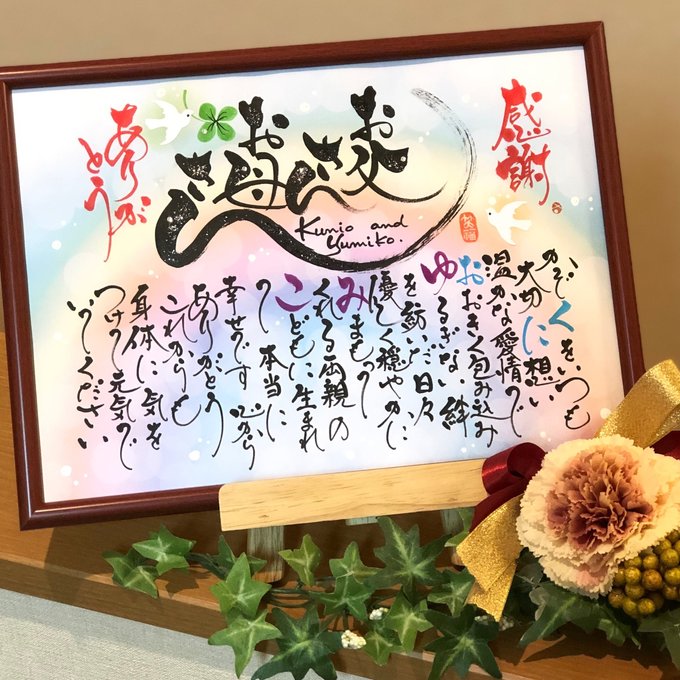 感謝
お父さん
お母さん
Kunio and
Yumiko.
ありがとう
かぞくをいつも
大切に想い
温かな愛情で
おおきく包み込み
ゆるぎない絆
を紡いだ日々
優しく穏やかに
みまもって
くれる両親の
こどもに生まれ
て 本当に
幸せです 心から
ありがとう
これからも
身体に気を
つけて元気で
いてください